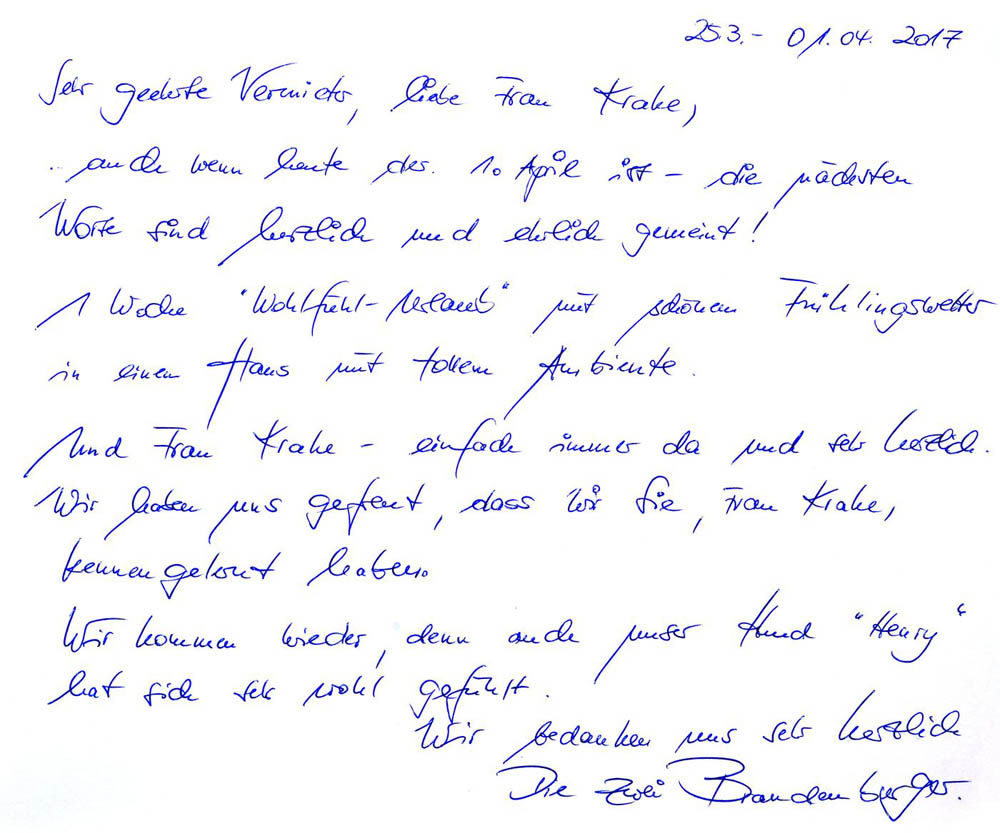 25.3. - 01.04. 2017
Sehr geehrte Vermieter, liebe Frau Krake,
... auch wenn heute der 1. April ist - die nächsten
Worte sind herzlich und ehrlich gemeint!
1 Woche "Wohlfühl-Urlaub" mit schönem Frühlingswetter
in einem Haus mit tollem Ambiente.
Und Frau Krake - einfach immer da und sehr herzlich.
Wir haben uns gefreut, dass wir Sie, Frau Krake,
kennengelernt haben.
Wir kommen wieder, denn auch unser Hund "Henry"
hat sich sehr wohl gefühlt.
Wir bedanken uns sehr herzlich
Die zwei Brandenburger.